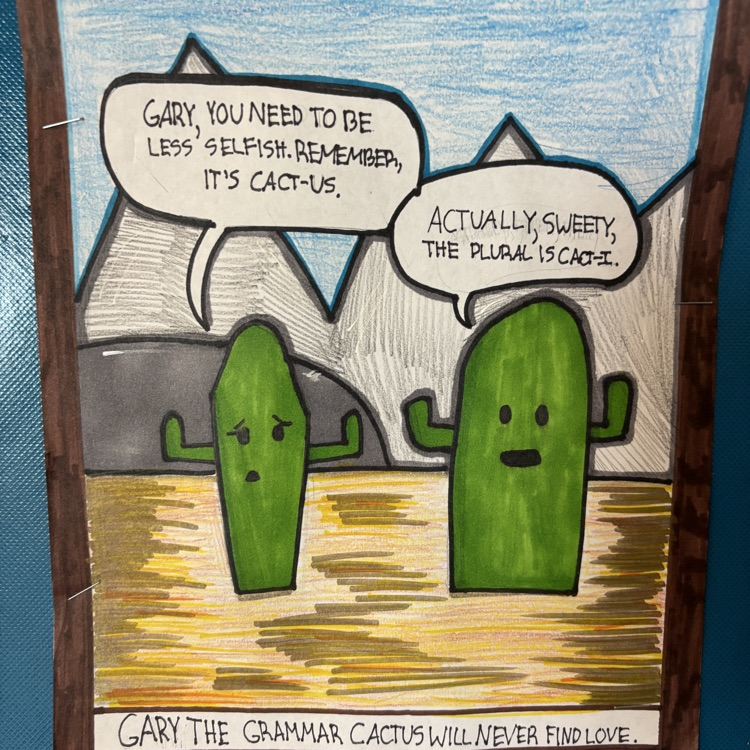 GARY, YOU NEED TO BE
LESS SELFISH. REMEMBER,
IT'S CACT-US.
ACTUALLY, SWEETY,
THE PLURAL IS CACT-I.
GARY THE GRAMMAR CACTUS WILL NEVER FIND LOVE.